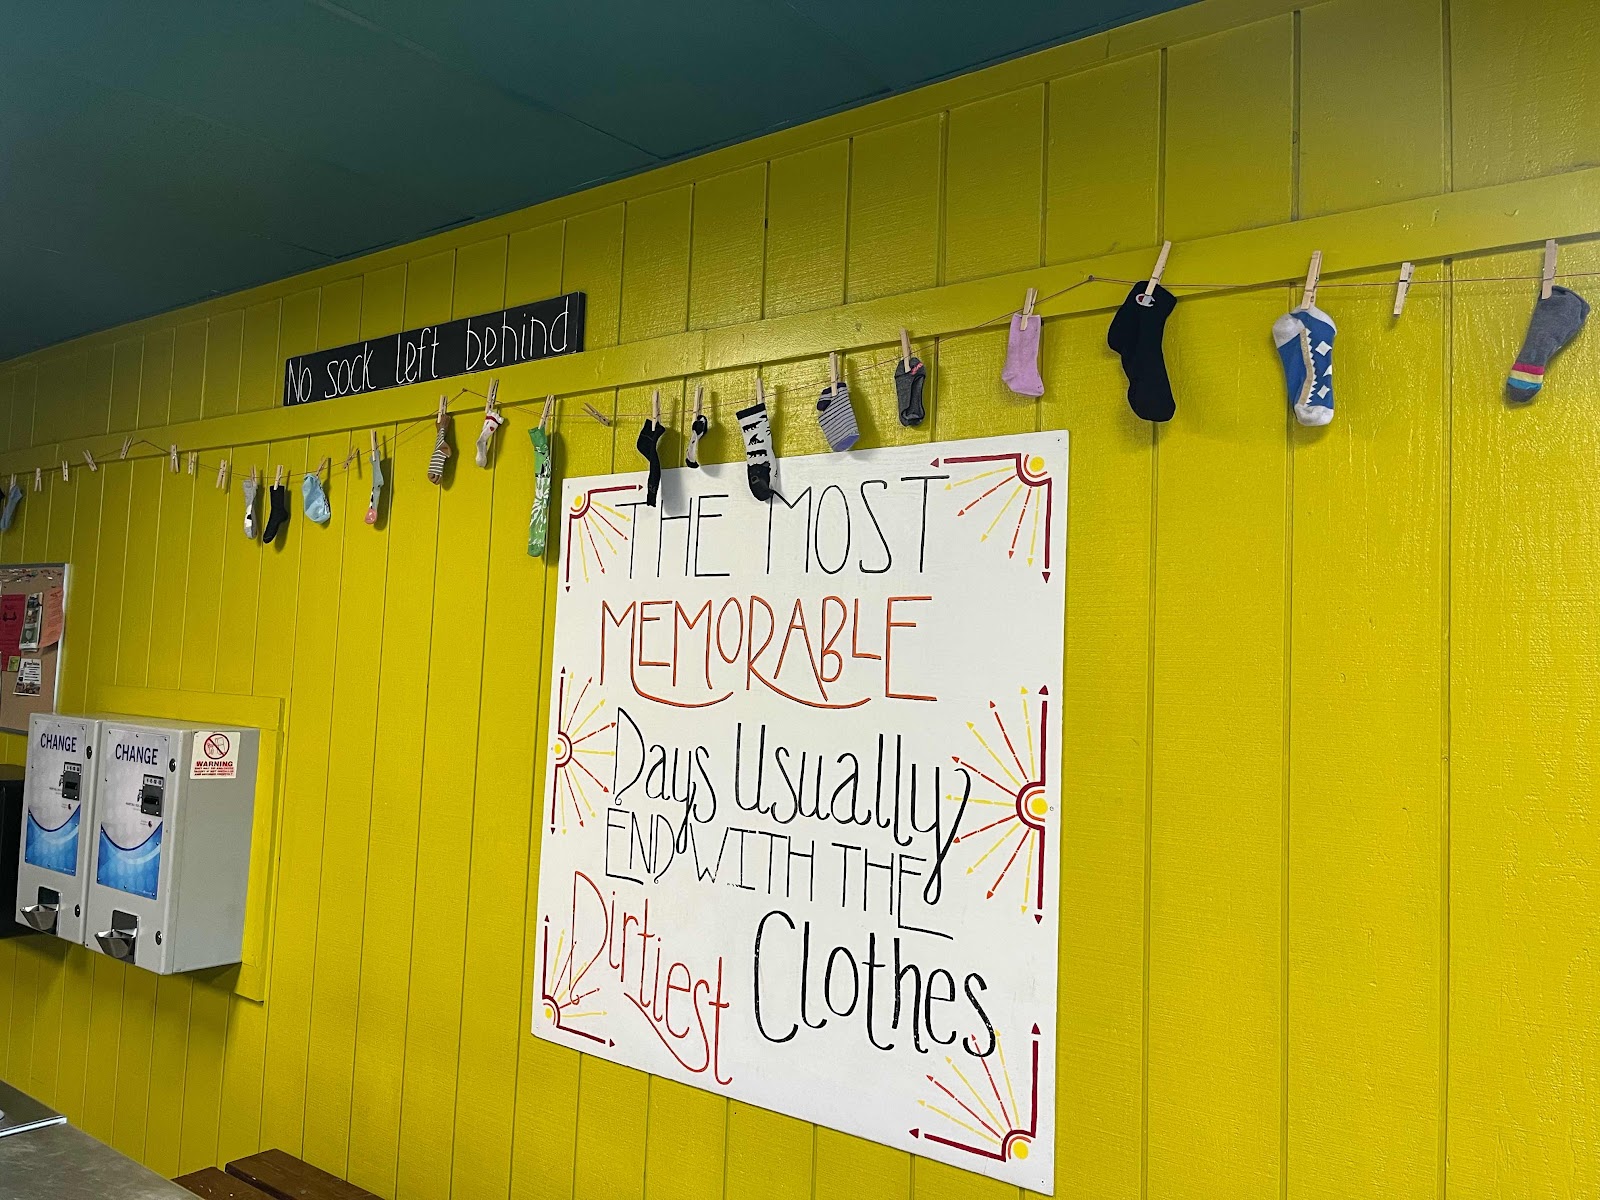 No sock left behind
THE MOST
MEMORABLE
Days Usually
END WITH THE
Dirtiest Clothes
CHANGE
CHANGE
WARNING